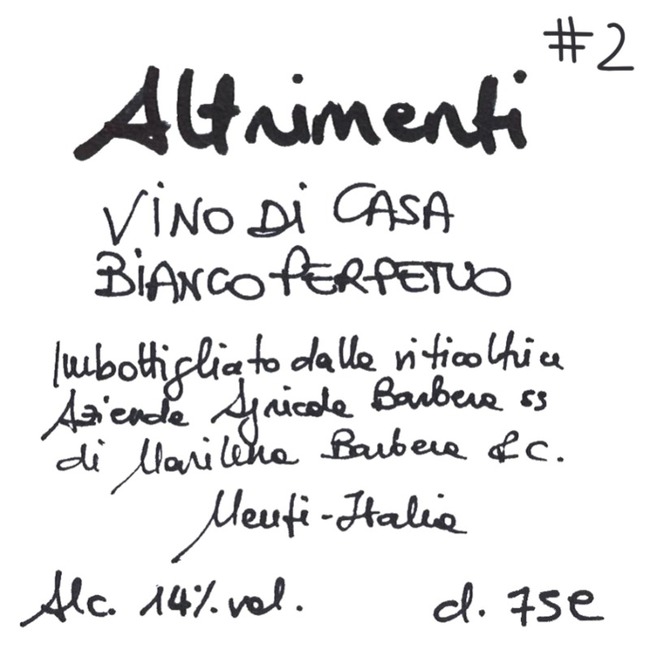 #2
Altrimenti
VINO DI CASA
BIANCO PERPETUO
Imbottigliato dalla viticoltrice
Azienda Agricola Barbera ss
di Marilena Barbera & C.
Menfi - Italia
Alc. 14% vol.
cl. 75 e